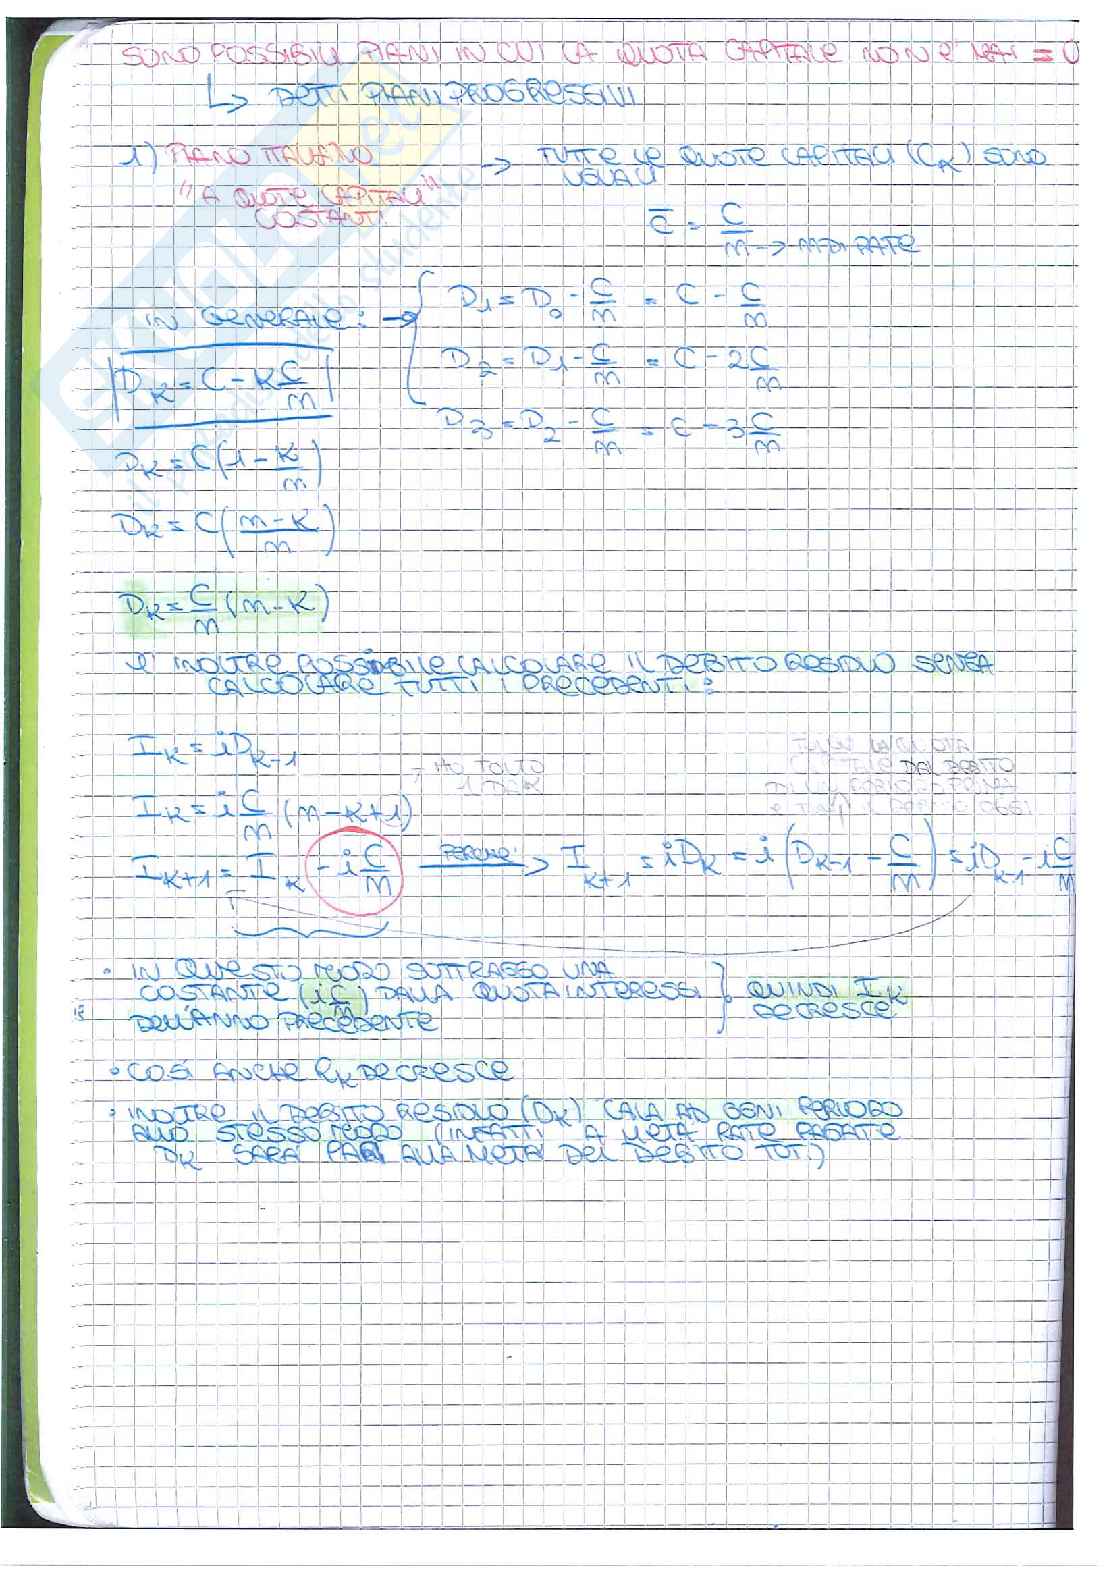 SONO POSSIBILI PIANI IN CUI LA QUOTA CAPITALE NON E' MAI = 0
↳ DETTI PIANI PROGRESSIVI
1) PIANO ITALIANO → TUTTE LE QUOTE CAPITALI (C_K) SONO
UGUALI
"A QUOTE CAPITALI"
COSTANTI
C̅ = C/m → m DI RATE
IN GENERALE: →
D_1 = D_0 - C/m = C - C/m
D_2 = D_1 - C/m = C - 2C/m
D_3 = D_2 - C/m = C - 3C/m
D_K = C - K C/m
D_K = C(1 - K/m)
D_K = C((m-K)/m)
D_K = C/m (m-K)
E' INOLTRE POSSIBILE CALCOLARE IL DEBITO RESIDUO SENZA
CALCOLARE TUTTI I PRECEDENTI:
I_K = iD_K-1
→ HO TOLTO
1 DA K
DAL DEBITO
I_K = i C/m (m-K+1)
I_K+1 = I_K - i C/m PERCHE' → I_K+1 = iD_K = i(D_K-1 - C/m) = iD_K-1 - i C/m
• IN QUESTO MODO SOTTRAGGO UNA
COSTANTE (i C/m) DALLA QUOTA INTERESSI
DELL'ANNO PRECEDENTE
QUINDI I_K
DECRESCE
• COSÌ ANCHE R_K DECRESCE
• INOLTRE IL DEBITO RESIDUO (D_K) CALA AD OGNI PERIODO
ALLO STESSO MODO (INFATTI A META' RATE PAGATE
D_K SARÀ PARI ALLA META' DEL DEBITO TOT.)